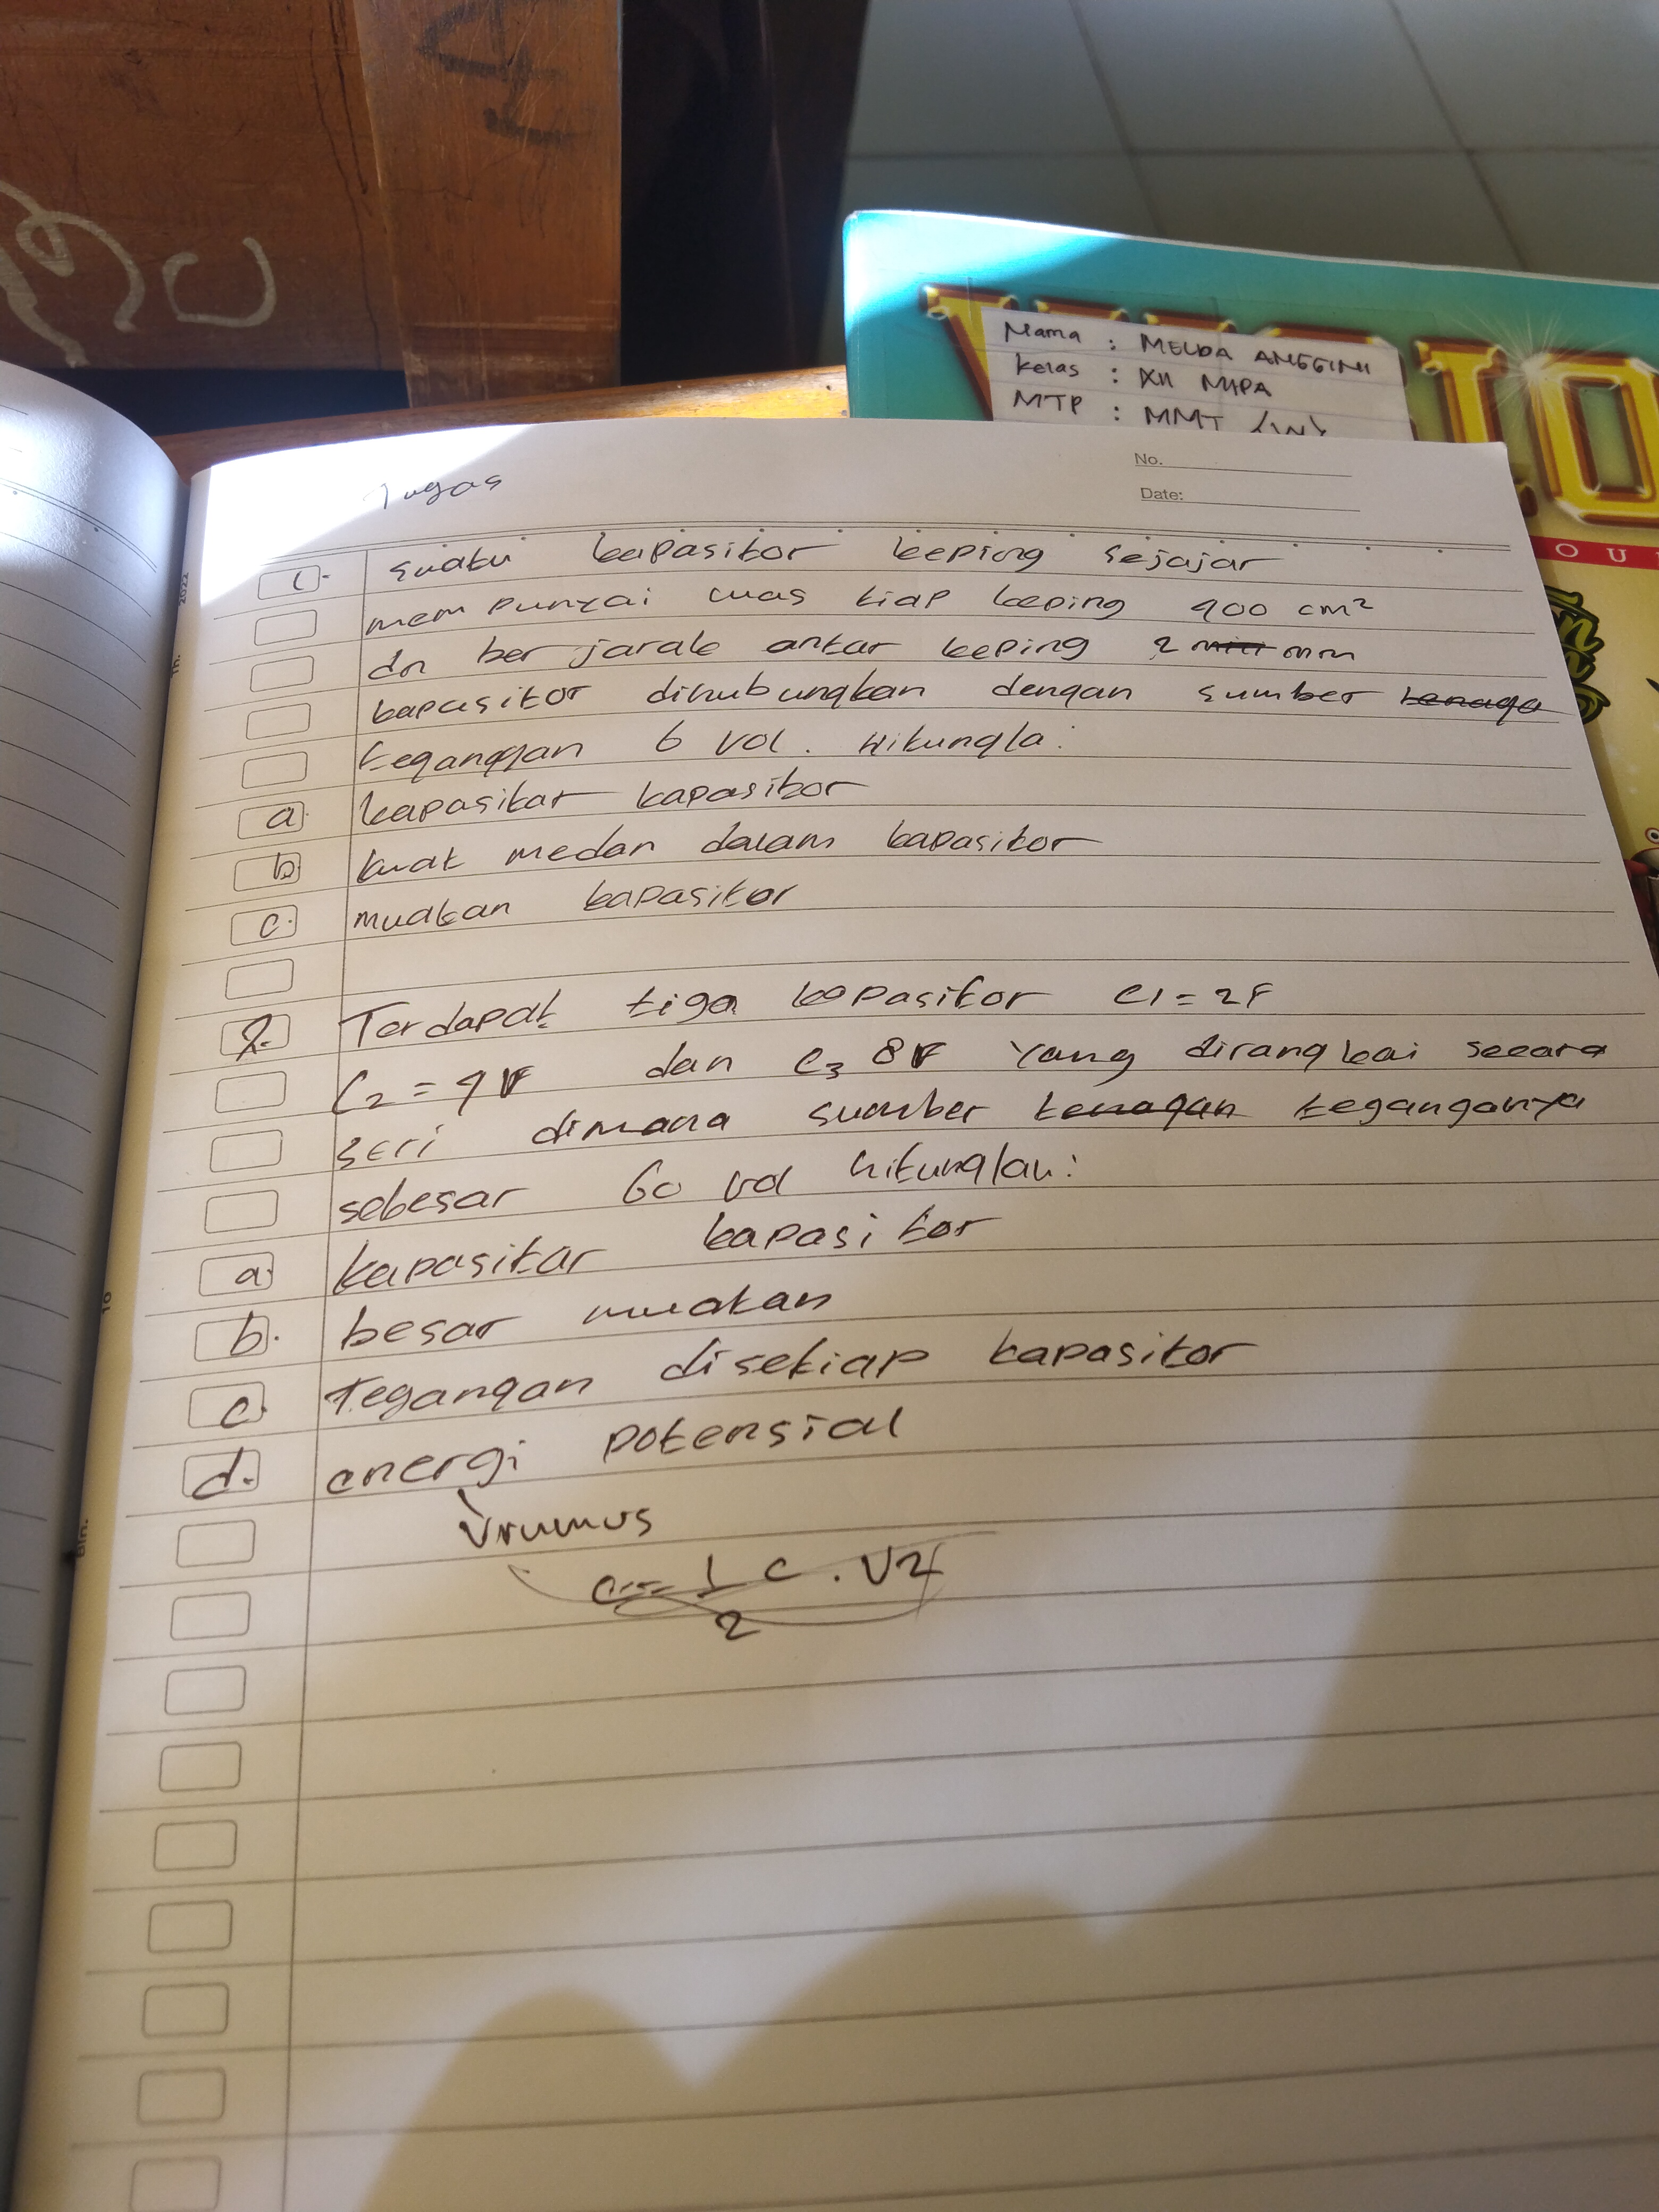 Nama : MELDA ANGGINI
Kelas : XII MIPA
MTP : MMT (W)
No.
Date:
Tugas
1. suatu kapasitor keping sejajar
mempunyai luas tiap keping 400 cm²
dn ber jarak antar keping 2 mm
kapasitor dihubungkan dengan sumber tenaga
teganggan 6 vol. Hitungla:
a. kapasitar kapasitor
b kuat medan dalam kapasitor
c. muatan kapasitor
2. Terdapat tiga kapasitor C1 = 2F
C₂ = 4F dan C₃ 8F yang dirangkai secara
seri dimana sumber tenagan teganganya
sebesar 60 vol hitunglah:
a. kapasitar kapasitor
b. besar muatan
c. Tegangan disetiap kapasitor
d. energi potensial
rumus
e = 1 c . V2
2
2022
OU